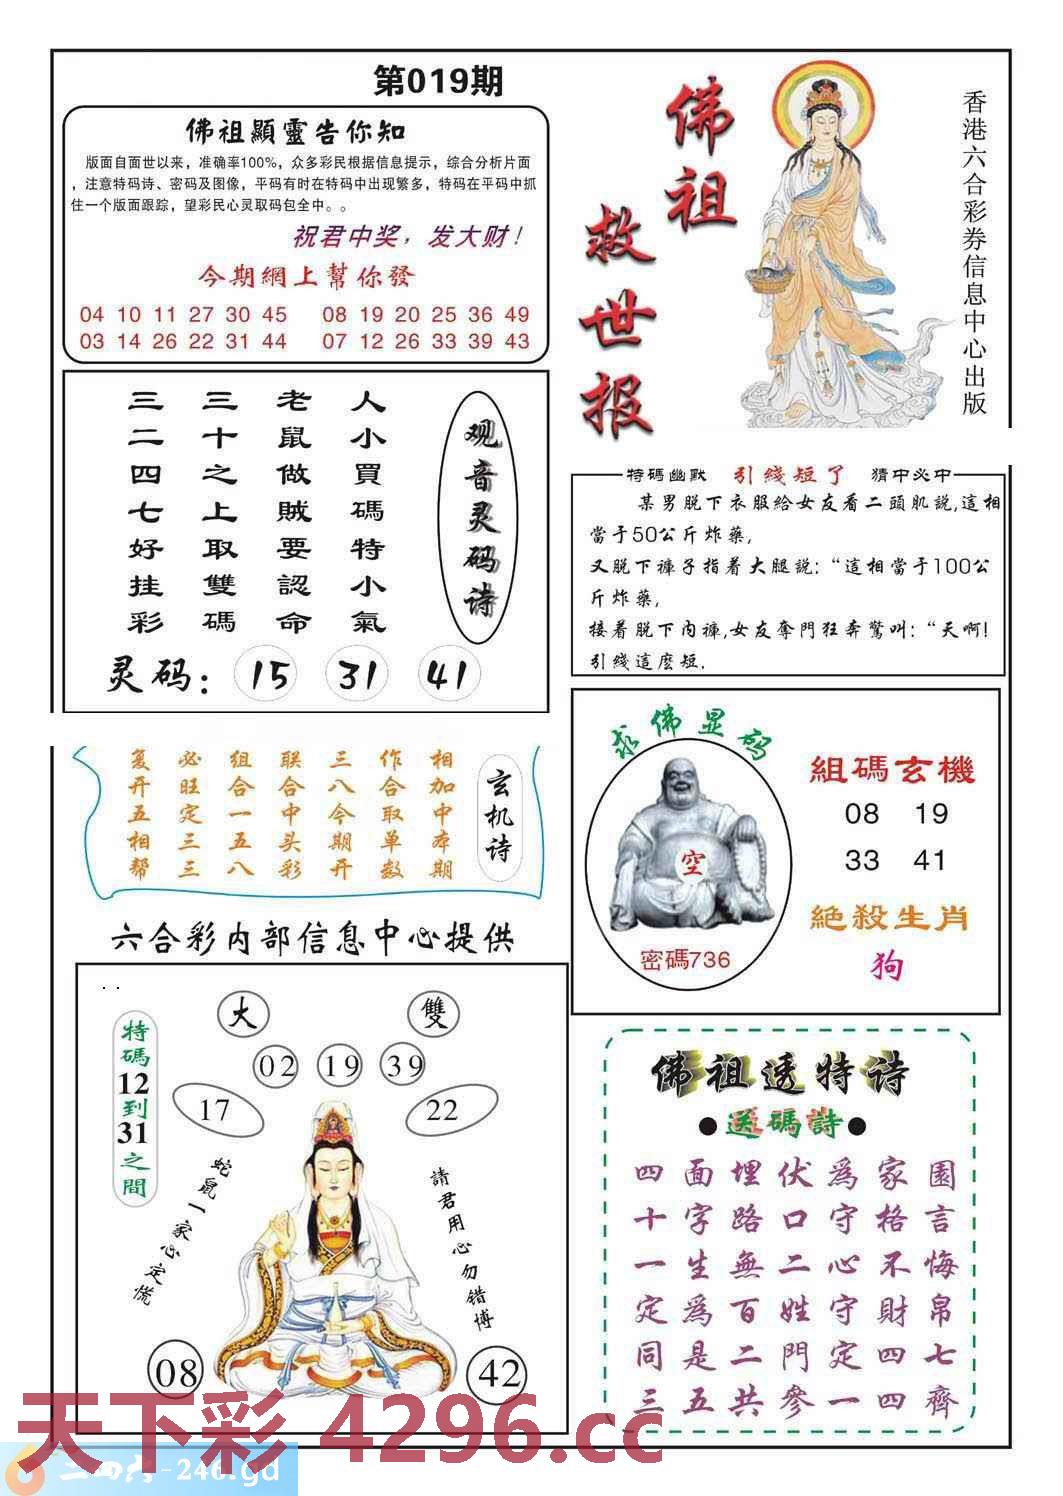 第019期
佛祖顯靈告你知
版面自面世以来，准确率100%，众多彩民根据信息提示，综合分析片面
，注意特码诗、密码及图像，平码有时在特码中出现繁多，特码在平码中抓
住一个版面跟踪，望彩民心灵取码包全中。。
祝君中奖，发大财！
今期網上幫你發
04 10 11 27 30 45 08 19 20 25 36 49
03 14 26 22 31 44 07 12 26 33 39 43
佛祖
救世报
香港六合彩券信息中心出版
观音灵码诗
人小買碼特小氣
老鼠做贼要認命
三十之上取雙碼
三二四七好挂彩
灵码：15 31 41
特碼幽默 引綫短了 猜中必中
某男脱下衣服給女友看二頭肌説,這相
當于50公斤炸藥,
又脱下褲子指着大腿説:“這相當于100公
斤炸藥,
接着脱下内褲,女友奪門狂奔驚叫:“天啊!
引綫這麽短.
玄机诗
相加中本期
作合取单数
三八今期开
联合中头彩
组合一五八
必旺定三三
复开五相帮
求佛显码
空
密碼736
組碼玄機
08 19
33 41
絶殺生肖
狗
六合彩内部信息中心提供
. .
特碼12到31之間
大
雙
02 19 39
17
22
蛇鼠一家心定慌
請君用心勿错博
08
42
佛祖透特诗
●送碼詩●
四面埋伏爲家園
十字路口守格言
一生無二心不悔
定爲百姓守財帛
同是二門定四七
三五共參一四齊
天下彩 4296.cc
二四六-246.gd